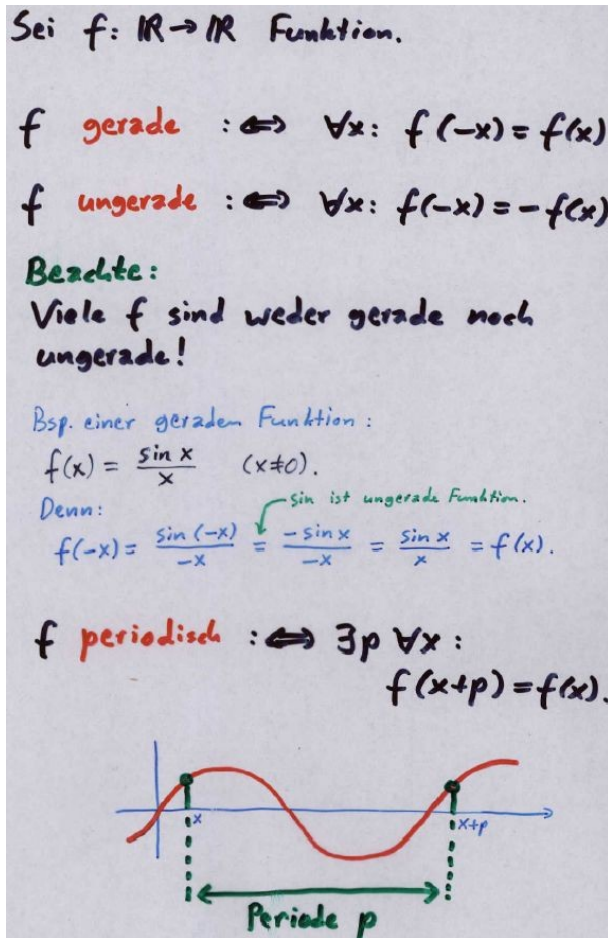 Sei f: ℝ → ℝ Funktion.
f gerade :⇔ ∀x: f(-x) = f(x)
f ungerade :⇔ ∀x: f(-x) = -f(x)
Beachte:
Viele f sind weder gerade noch
ungerade!
Bsp. einer geraden Funktion:
f(x) = sin x / x (x≠0).
Denn:
sin ist ungerade Funktion.
f(-x) = sin(-x) / -x = -sin x / -x = sin x / x = f(x).
f periodisch :⇔ ∃p ∀x:
f(x+p) = f(x).
x x+p
Periode p